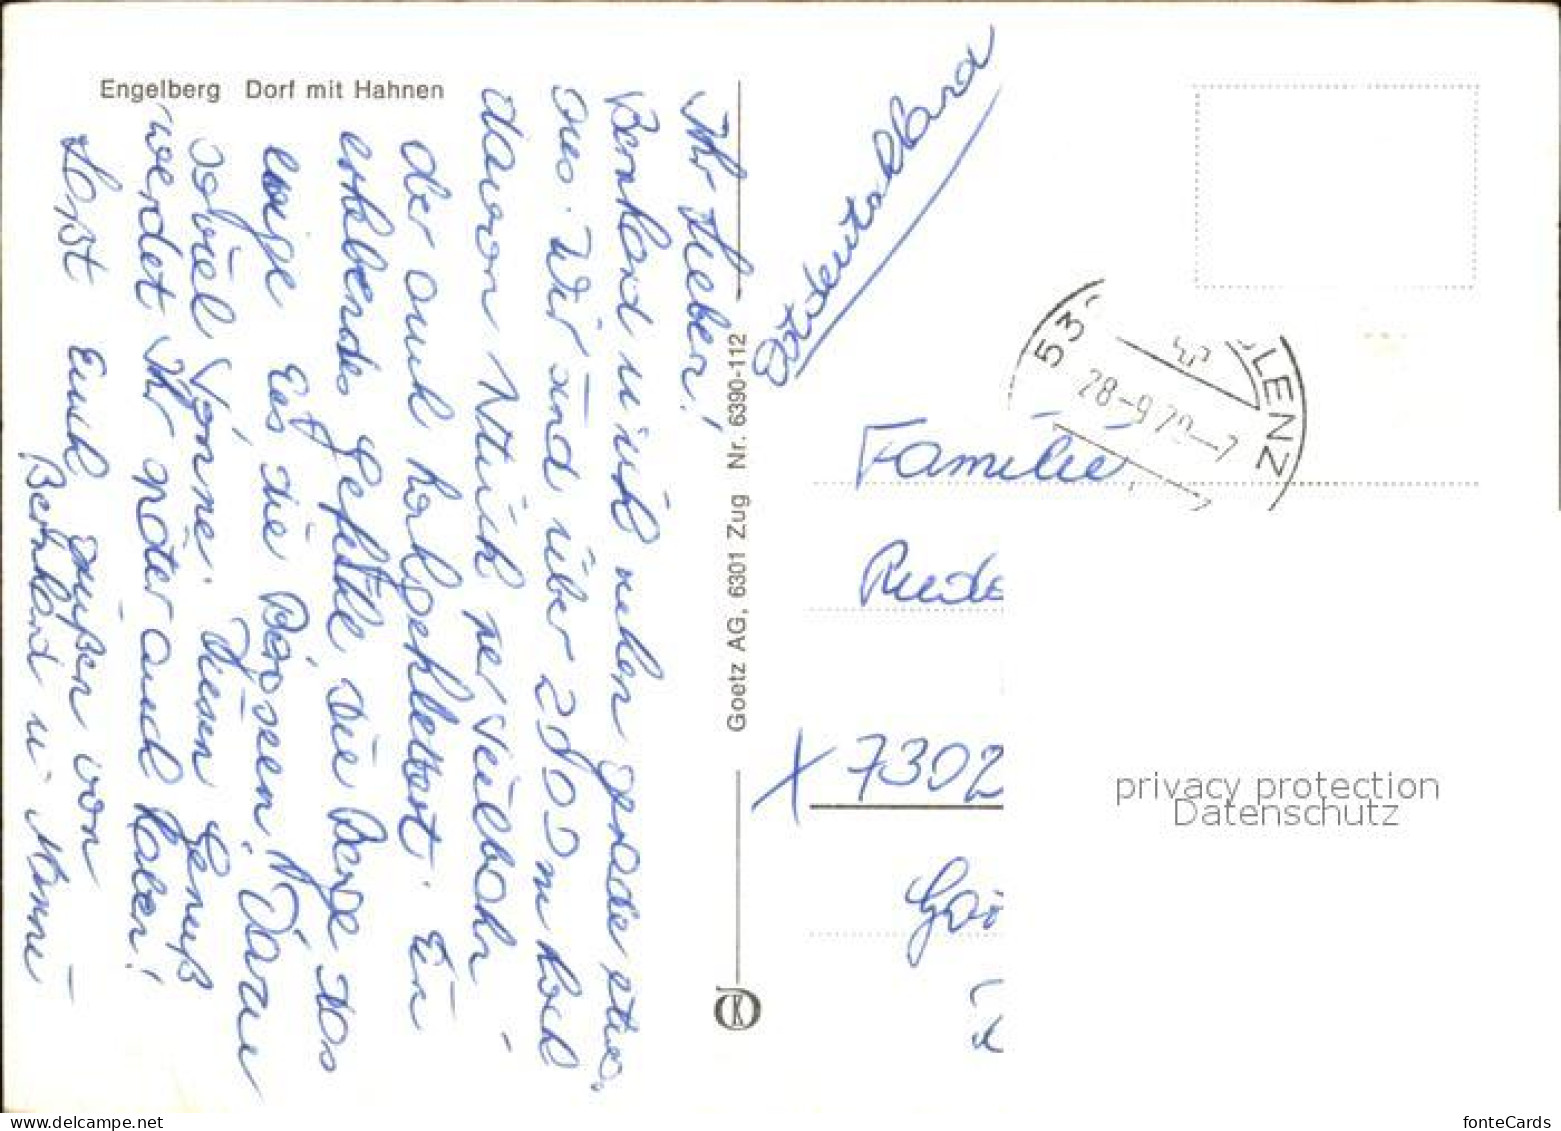 Engelberg Dorf mit Hahnen
Ihr Lieben!
Bernhard u ich ruhen grade etwas
aus. Wir sind über 2800 m hoch
davon 1 Stück per Seilbahn
der auch hochgeklettert. Ein
erhebendes Gefühle die Berge das
ewige Eis die Bergseen, Dazu
soviel Sonne. Diesen Genuß
werdet Ihr später auch haben!
Laßt Euch grüßen von
Bernhard u Nanni
Goetz AG, 6301 Zug Nr. 6390-112
Ostdeutschland
53
LENZ
28-9 79-7
Familie
X 7302
privacy protection
Datenschutz
delcampe.net
fonteCards